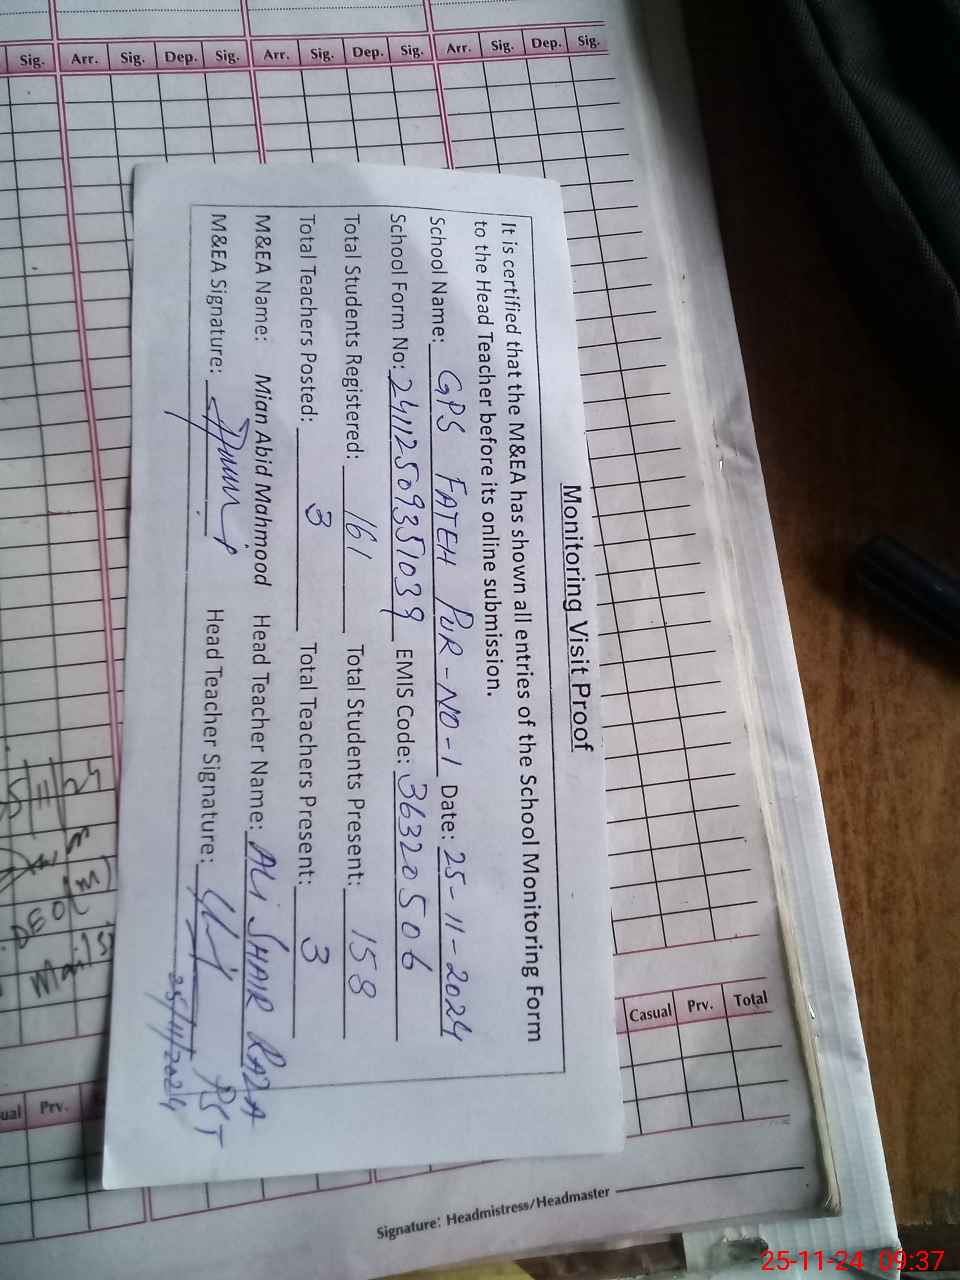 Sig. Arr. Sig. Dep. Sig. Arr. Sig. Dep. Sig. Arr. Sig. Dep. Sig.
Monitoring Visit Proof
It is certified that the M&EA has shown all entries of the School Monitoring Form
to the Head Teacher before its online submission.
School Name: GPS FATEH PUR-NO-1 Date: 25-11-2024
School Form No: 24112509351039 EMIS Code: 36320506
Total Students Registered: 161 Total Students Present: 158
Total Teachers Posted: 3 Total Teachers Present: 3
M&EA Name: Mian Abid Mahmood Head Teacher Name: ALi SHAIR RAZA
M&EA Signature: Head Teacher Signature: PST
25/11/2024
5/11/24
DEO(m)
Casual Prv. Total
ual Prv.
Signature: Headmistress/Headmaster
25-11-24 09:37